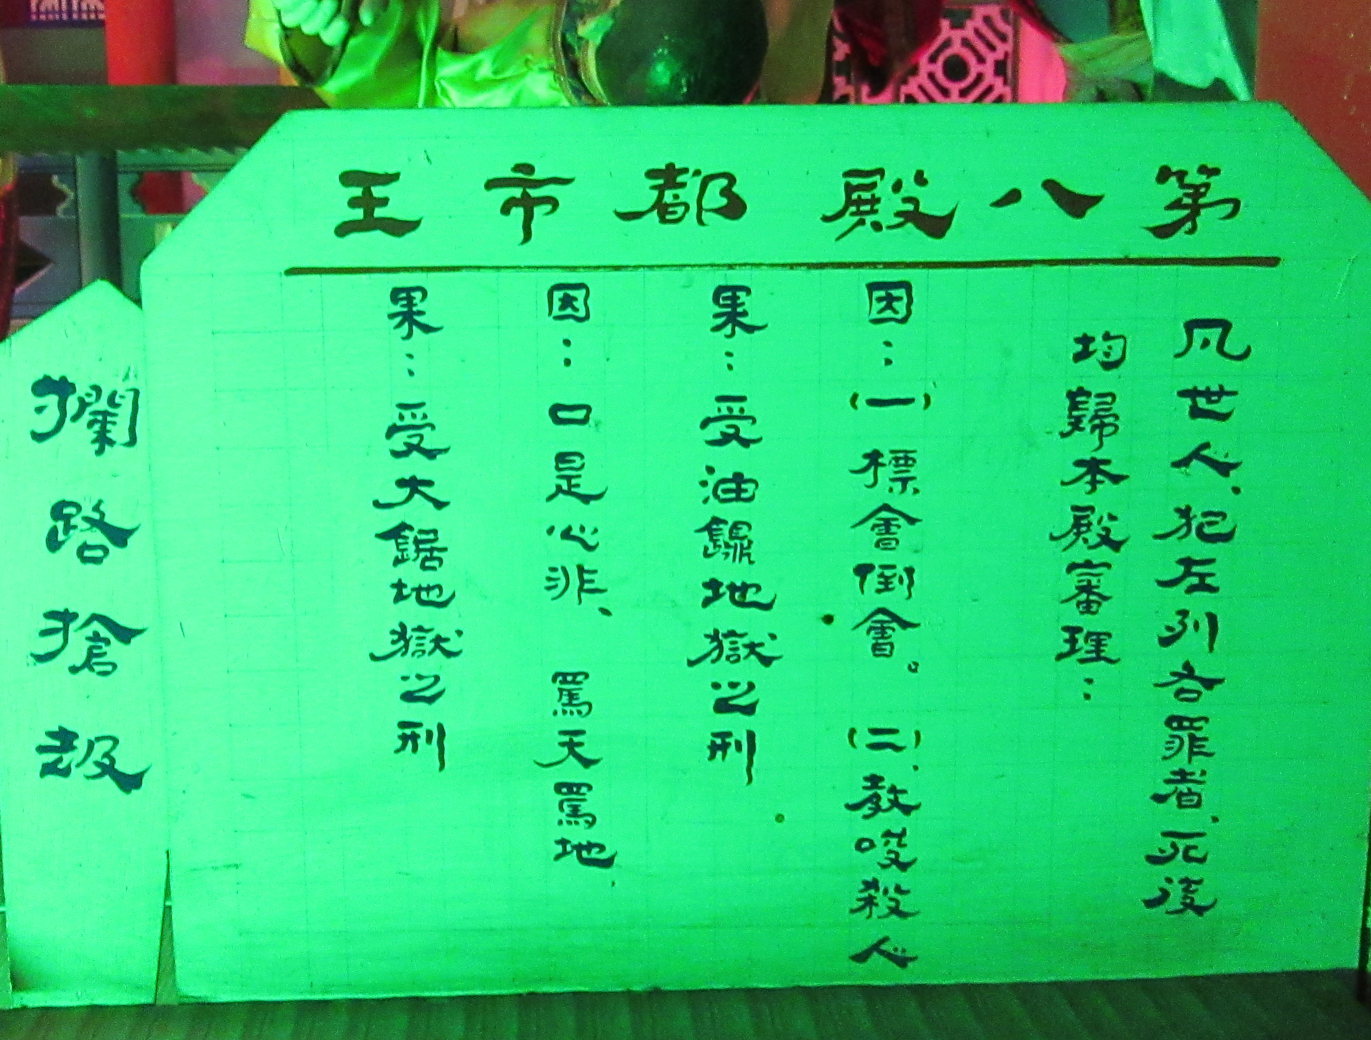 第八殿都市王
凡世人、犯左列各罪者、死後
均歸本殿審理：
因：(一)標會倒會。(二)、教唆殺人
果：受油鼎地獄之刑
因：口是心非、罵天罵地
果：受大鋸地獄之刑
攔路搶劫